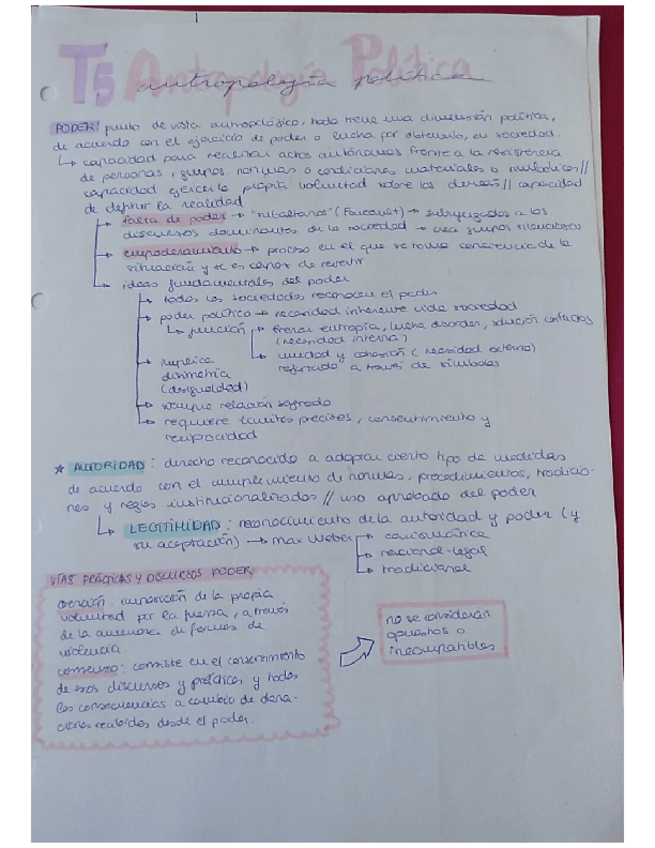 T5 Antropología Política
antropología política
PODER: punto de vista antropológico, todo tiene una dimensión política,
de acuerdo con el ejercicio de poder o lucha por obtenerlo, en sociedad.
↳ capacidad para realizar actos autónomos frente a la resistencia
de personas, grupos, normas o condiciones materiales o simbólicas//
capacidad ejercer la propia voluntad sobre los demás// capacidad
de definir la realidad
→ falta de poder → "subalternos" (Foucault) → subyugados a los
discursos dominantes de la sociedad → crea grupos silenciosos
→ empoderamiento → proceso en el que se toma conciencia de la
situación y se es capaz de revertir
→ ideas fundamentales del poder
→ todas las sociedades reconocen el poder
→ poder político → necesidad inherente vida sociedad
↳ función → frenar entropía, lucha desorden, solución conflictos
(necesidad interna)
→ unidad y cohesión (necesidad externa)
reforzado a través de símbolos
→ implica
disimetría
(desigualdad)
→ siempre relación sagrado
→ requiere límites precisos, consentimiento y
reciprocidad
* AUTORIDAD: derecho reconocido a adoptar cierto tipo de medidas
de acuerdo con el cumplimiento de normas, procedimientos, tradicio-
nes y reglas institucionalizadas // uso aprobado del poder
↳ LEGITIMIDAD: reconocimiento de la autoridad y poder (y
su aceptación) → Max Weber → carismática
→ racional-legal
→ tradicional
VÍAS PRÁCTICAS Y DISCURSOS PODER
coerción: imposición de la propia
voluntad por la fuerza, a través
de la amenaza de formas de
violencia
consenso: consiste en el consentimiento
de esos discursos y prácticas y todas
las consecuencias a cambio de dona-
ciones recibidas desde el poder.
no se consideran
opuestos o
incompatibles